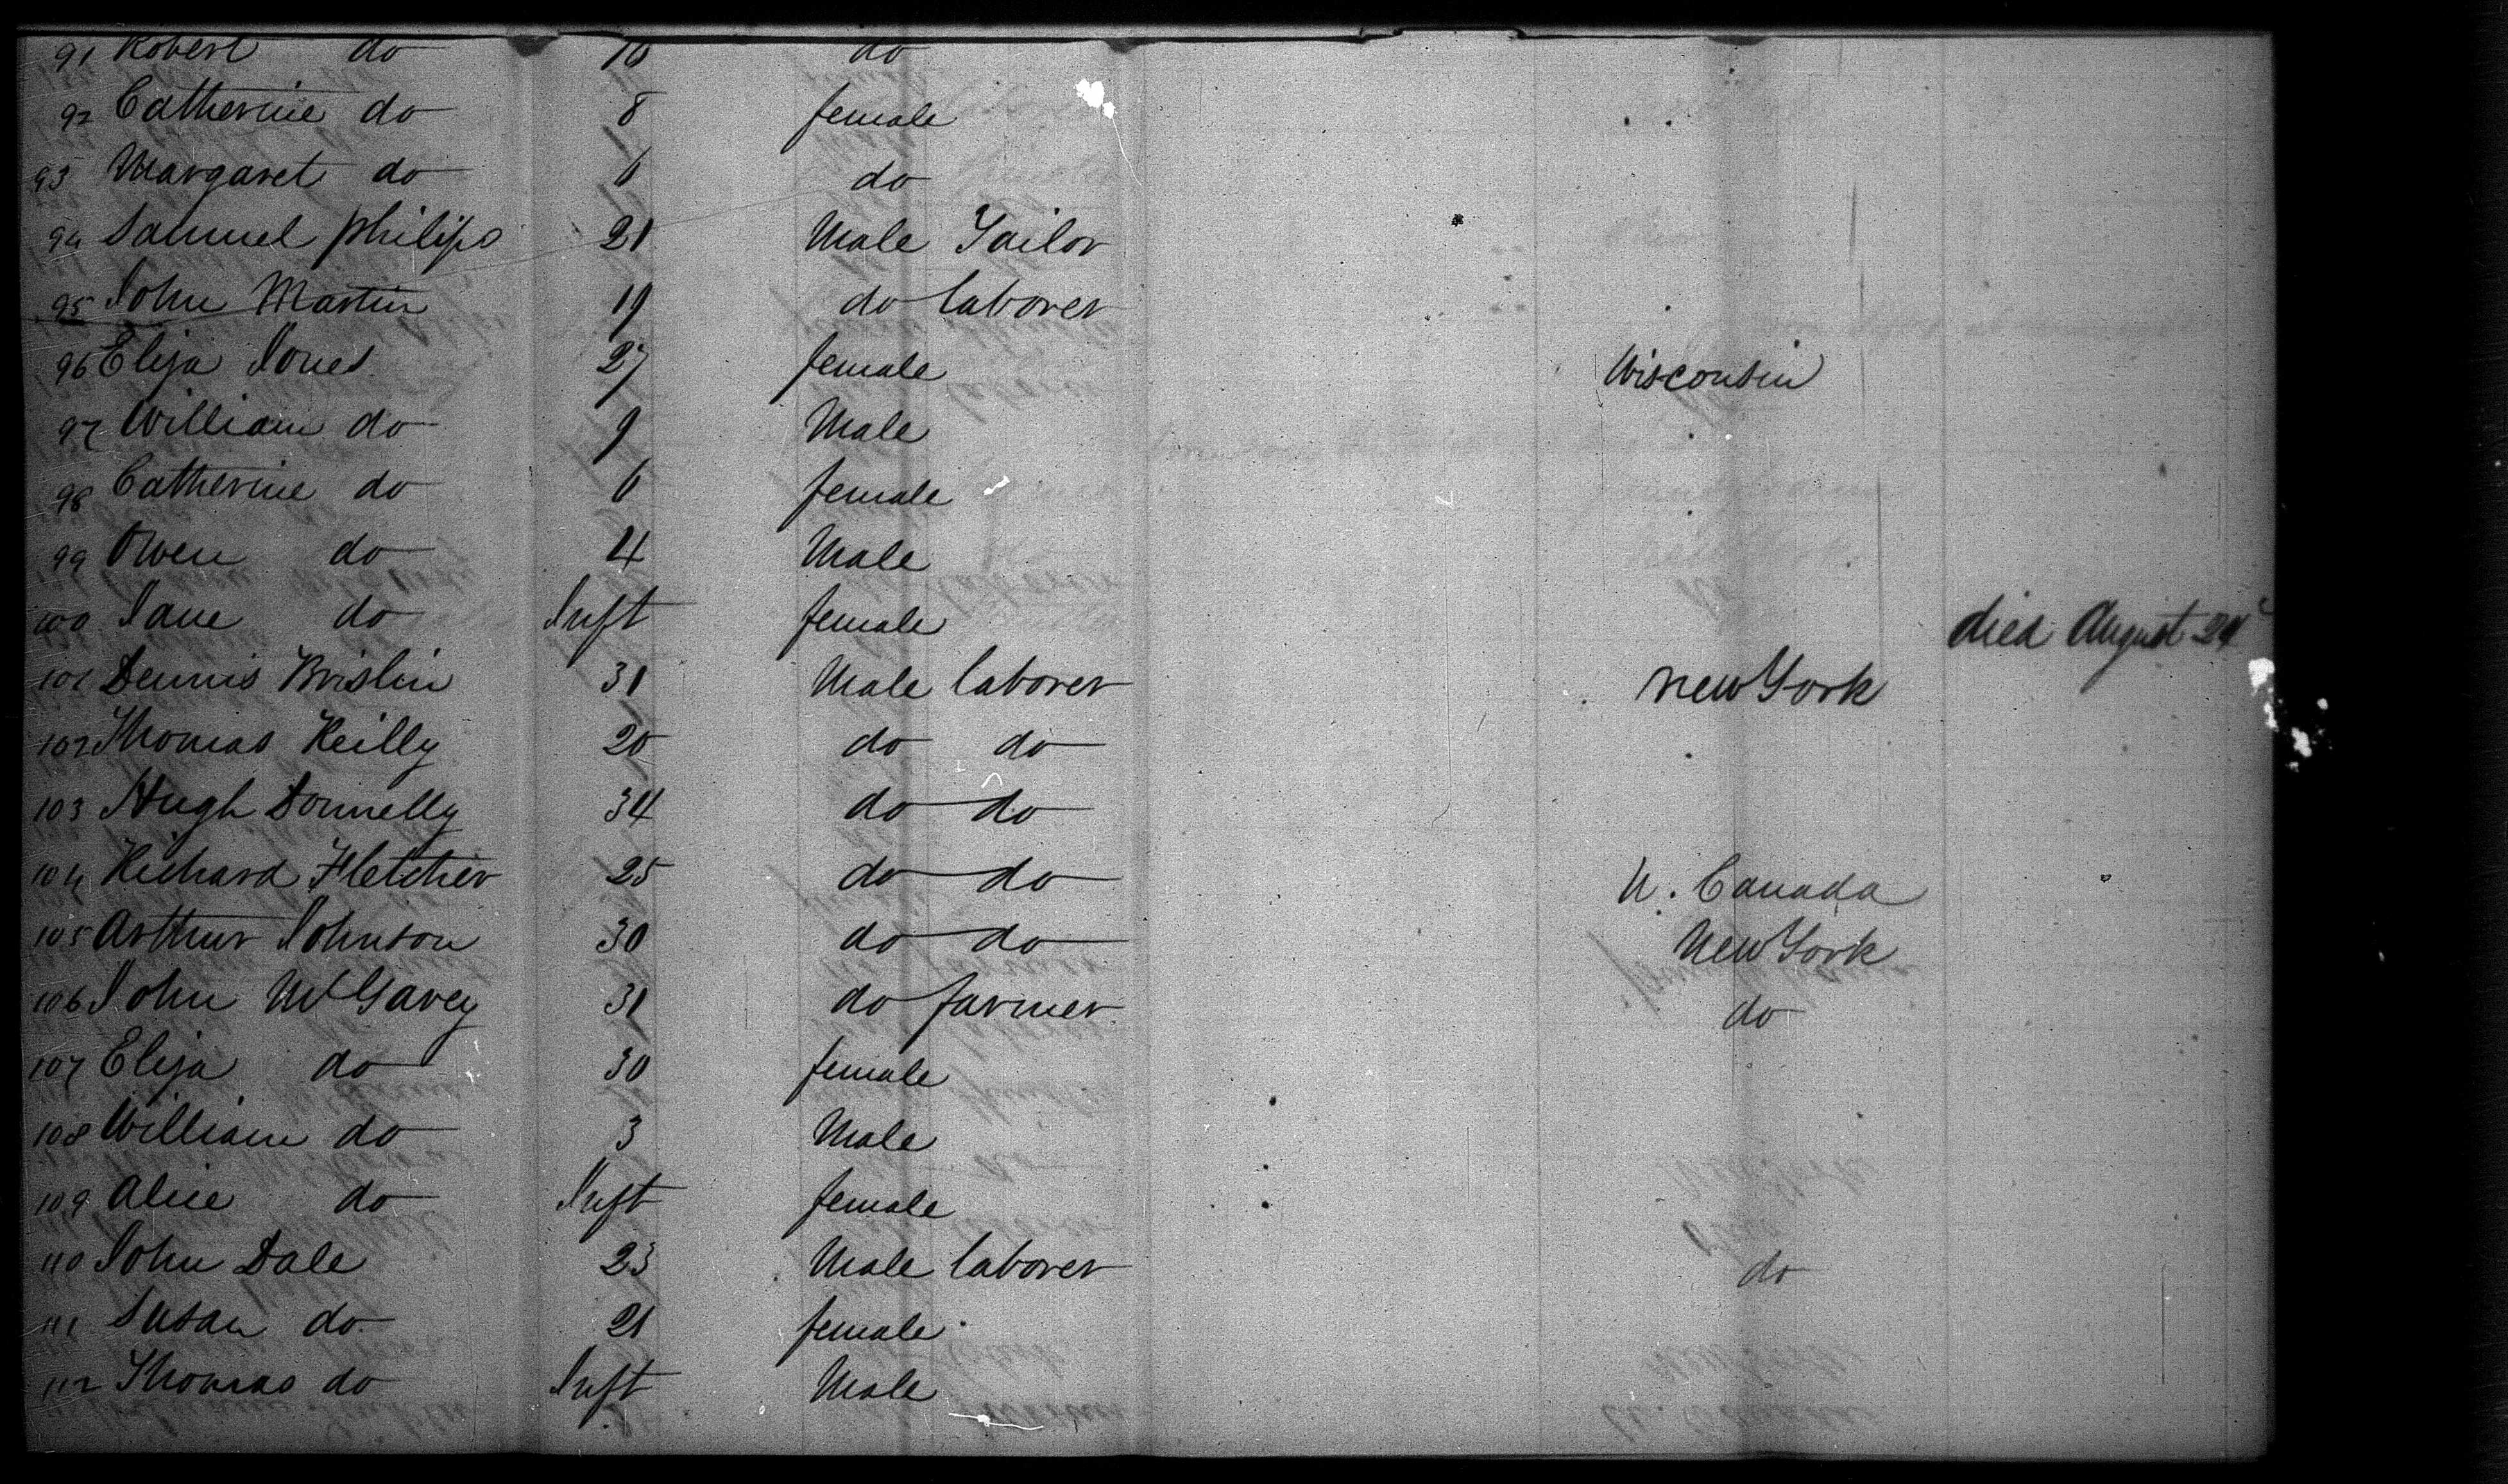 91 Robert do 10 do
92 Catherine do 8 female
93 Margaret do 6 do
94 Samuel Philips 21 Male Tailor
95 John Martin 19 do laborer
96 Eliza Jones 27 female Wisconsin
97 William do 9 Male
98 Catherine do 6 female
99 Owen do 4 Male
100 Jane do Inft female died August 24
101 Dennis Brislin 31 Male laborer New York
102 Thomas Reilly 20 do do
103 Hugh Donnelly 34 do do
104 Richard Fletcher 25 do do U. Canada
105 Arthur Johnson 30 do do New York
106 John McGavey 31 do farmer do
107 Eliza do 30 female
108 William do 3 Male
109 Alice do Inft female
110 John Dale 23 Male laborer do
111 Susan do 21 female
112 Thomas do Inft Male